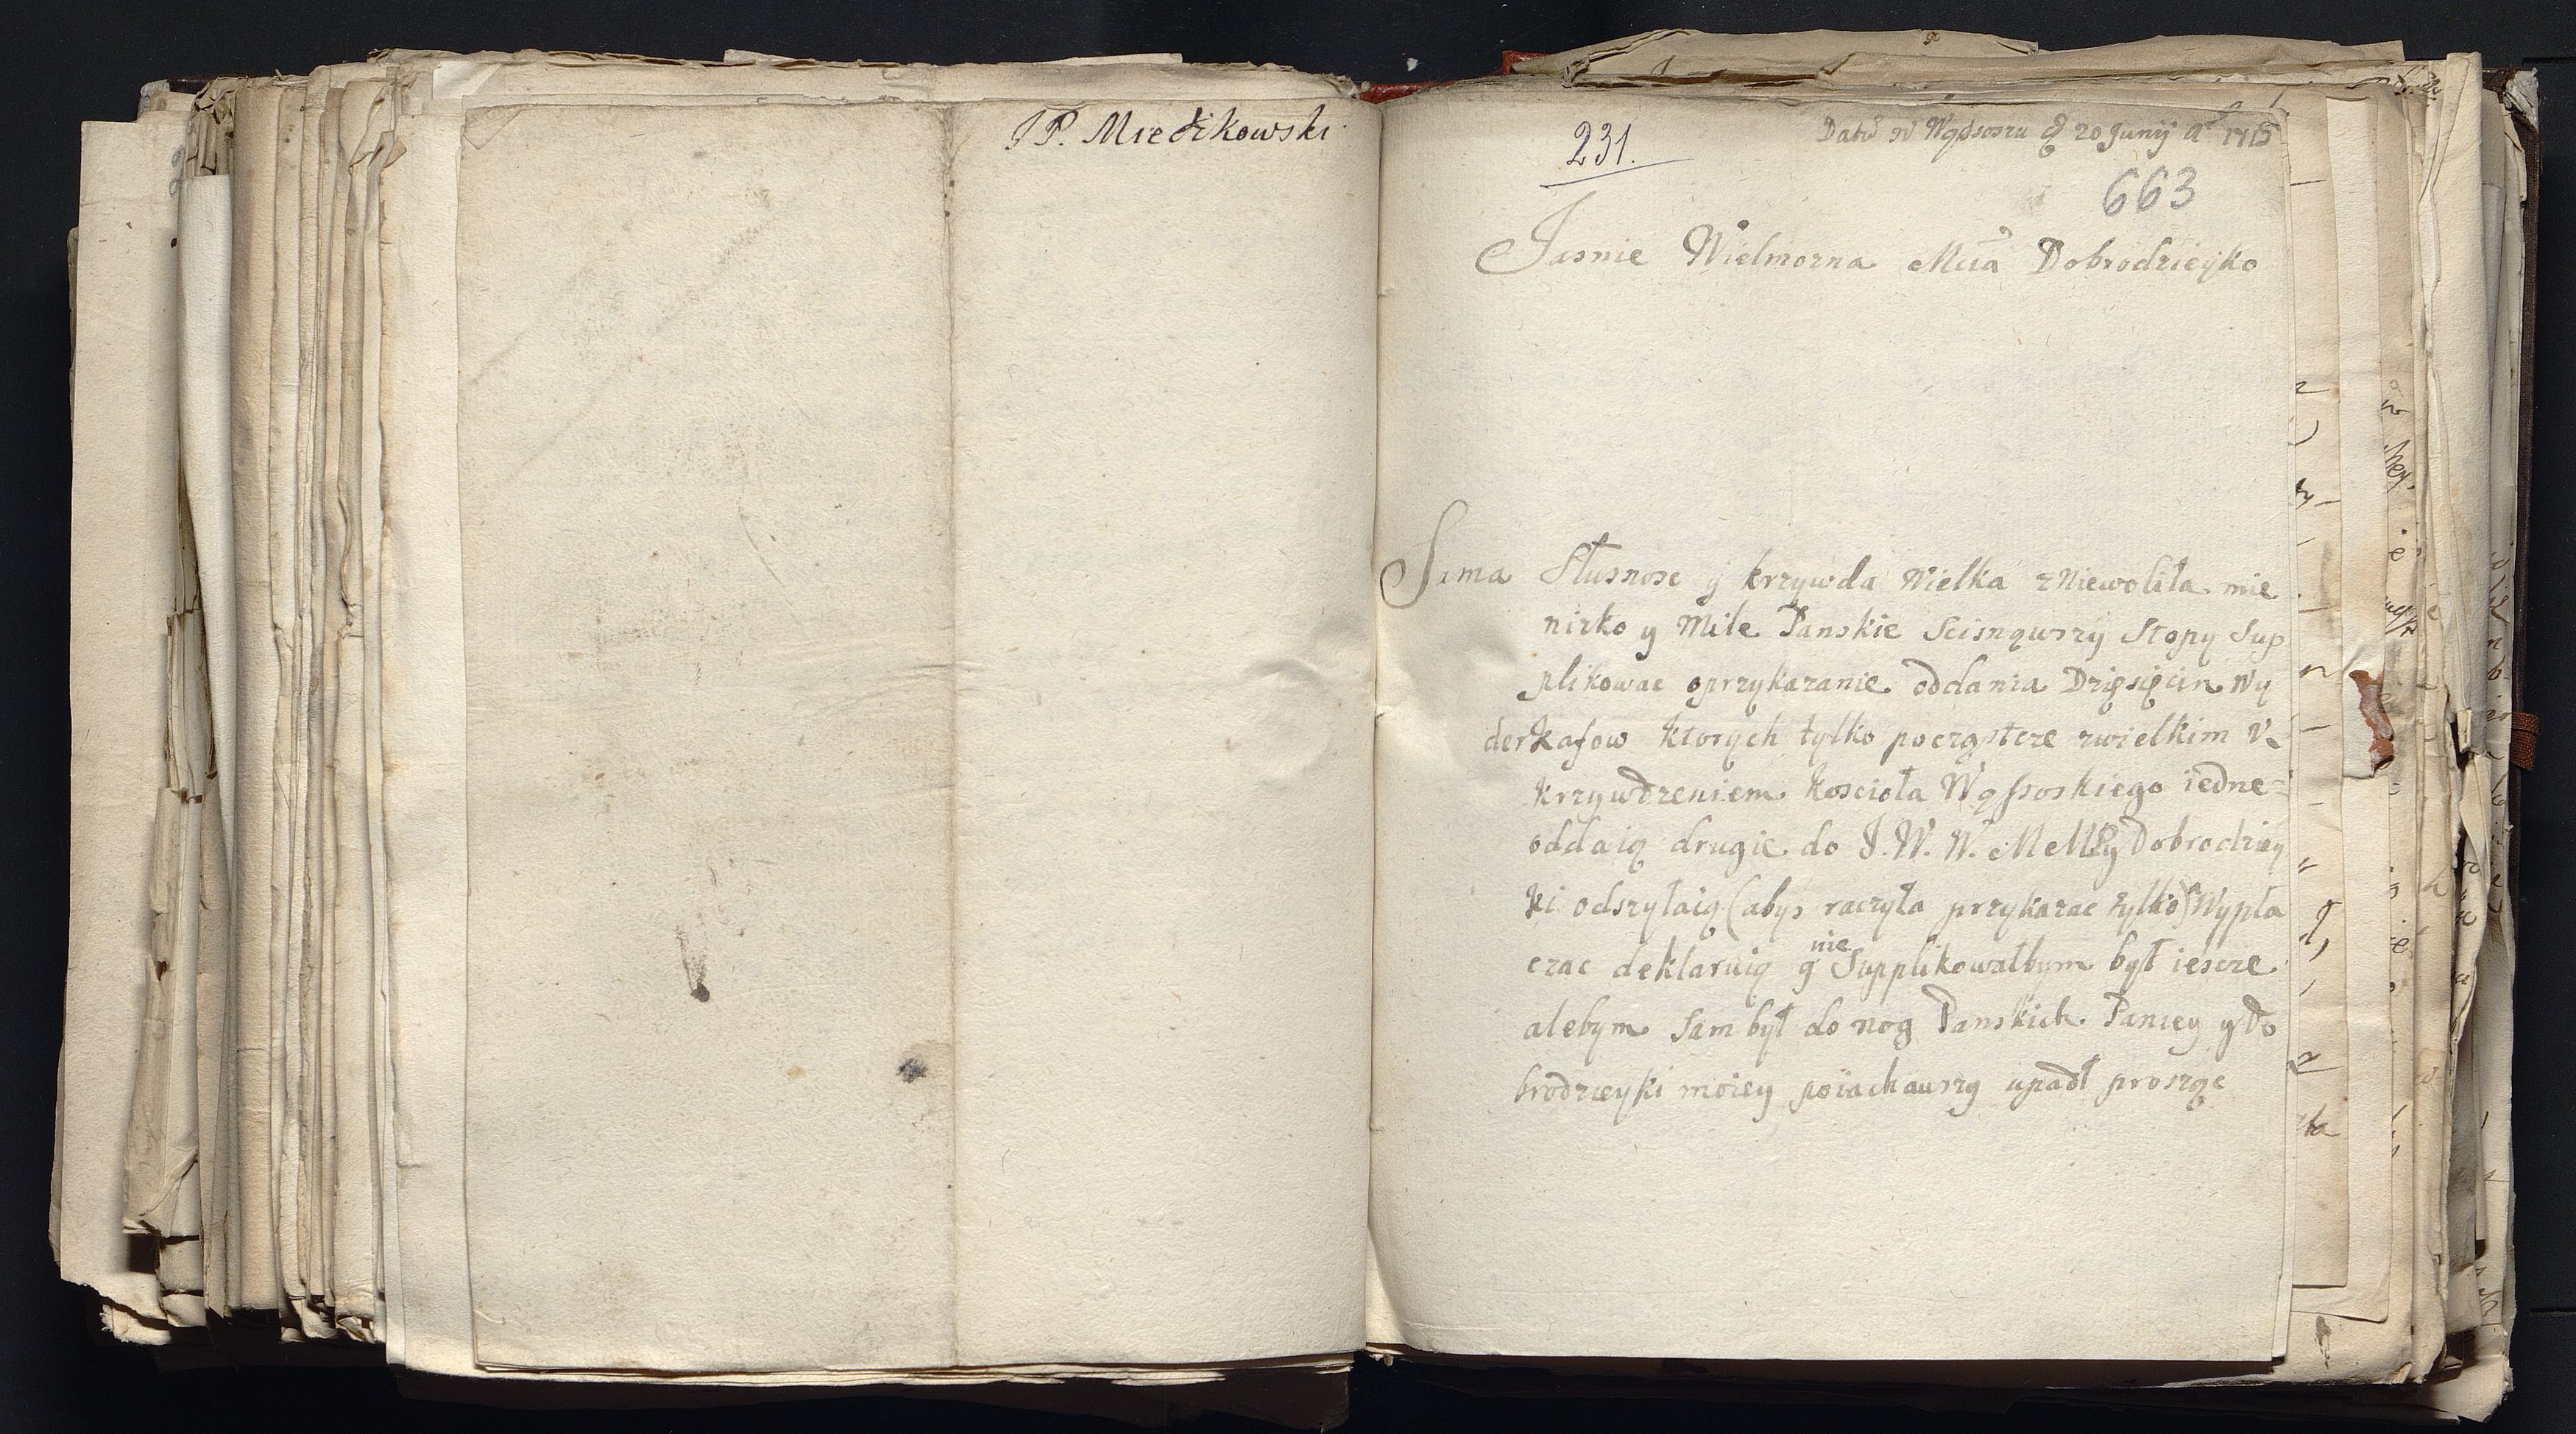 JP. Miecikowski
231.
Datũ w Wąssoszu 20 Junij Aº 1715
663
Jasnie Wielmozna Mcia Dobrodzieyko
Sama Słusnosc y krzywda Wielka zniewoliła mie
nizko y Mile Panskie Scisnąwszy Stopy Sup
plikowac oprzykazanie oddania Dzięsięcin Wy
derkafow ktorych tylko poczęstcze zwielkim V
krzywdzeniem Kosciola Wąssoskiego iedne
oddaią drugie do J. W. W. M Dobrodziey
ki odszyłaią (abys raczyła przykazac tylko) Wypła
czac deklaruią y nie Supplikowałbym był iescze
alebym sam był do nog Panskich Paniey y Do
brodzieyki moiey poiachauszy upadł proszę